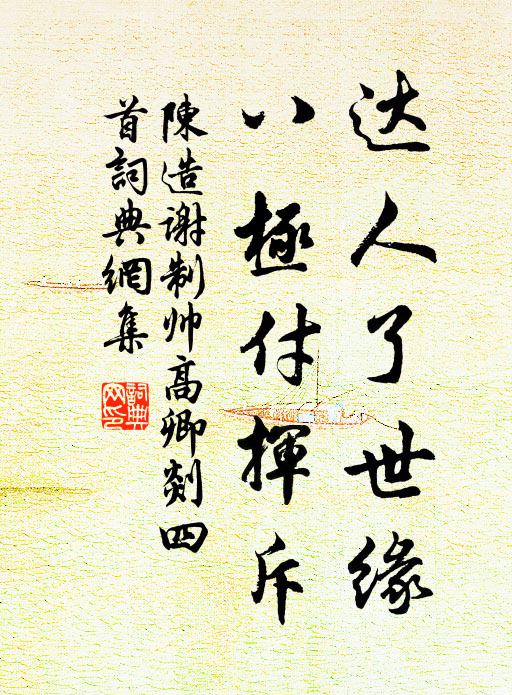 达人了世缘
八極付揮斥
陳造谢制帅高卿剡四
首詞典網集
詞典
网印